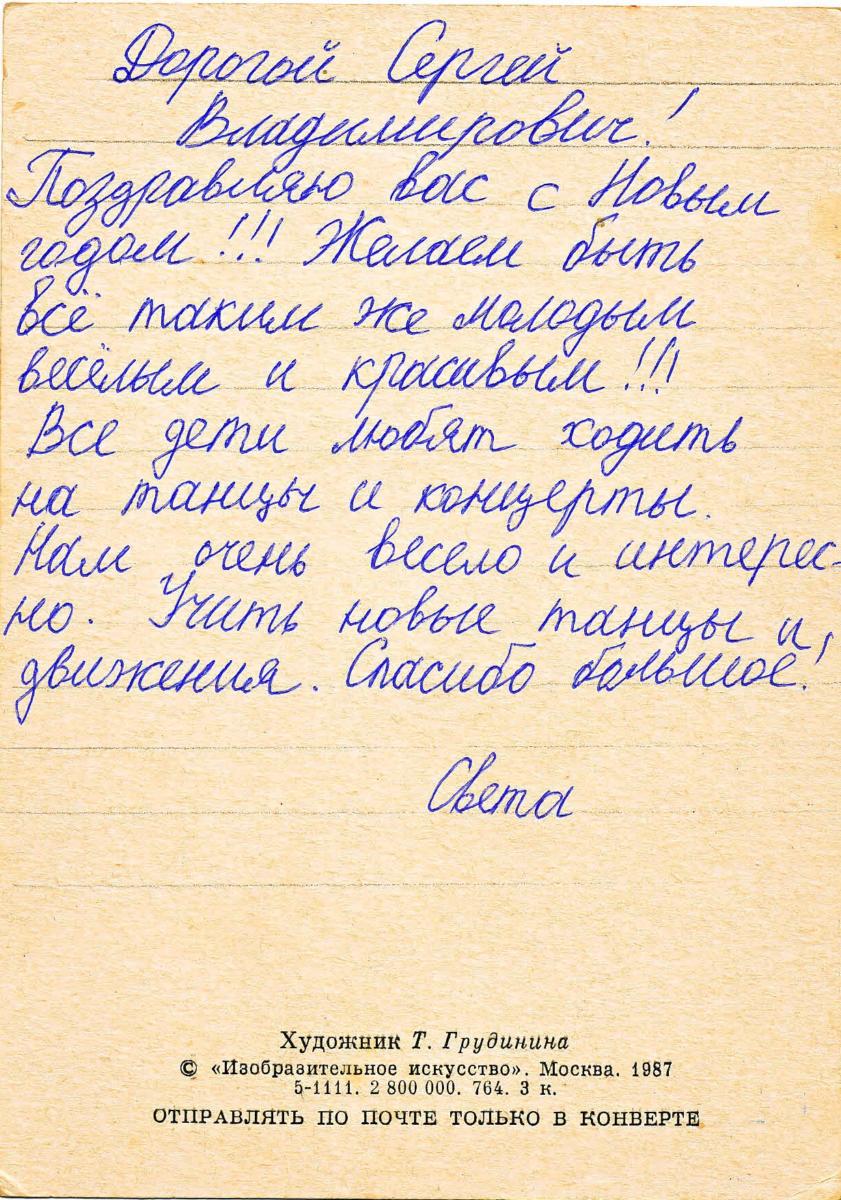 Дорогой Сергей
Владимирович!
Поздравляю вас с Новым
годом!!! Желаем быть
всё таким же молодым
весёлым и красивым!!!
Все дети любят ходить
на танцы и концерты.
Нам очень весело и интерес-
но. Учить новые танцы и,
движения. Спасибо большое!
Света
Художник Т. Грудинина
© «Изобразительное искусство». Москва. 1987
5-1111. 2 800 000. 764. 3 к.
ОТПРАВЛЯТЬ ПО ПОЧТЕ ТОЛЬКО В КОНВЕРТЕ